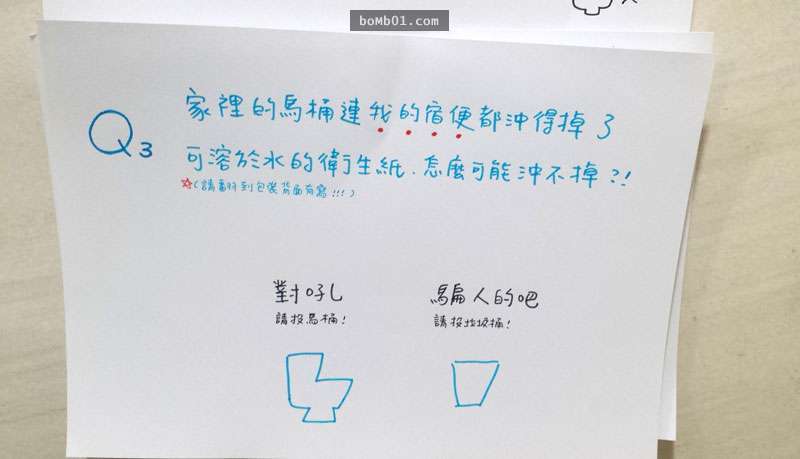 boMb01.com
Q3
家裡的馬桶連我的宿便都沖得掉了
可溶於水的衛生紙.怎麼可能沖不掉?!
☆(請翻到包裝背面有寫!!!)
對吼し
請投馬桶!
騙人的吧
請投垃圾桶!